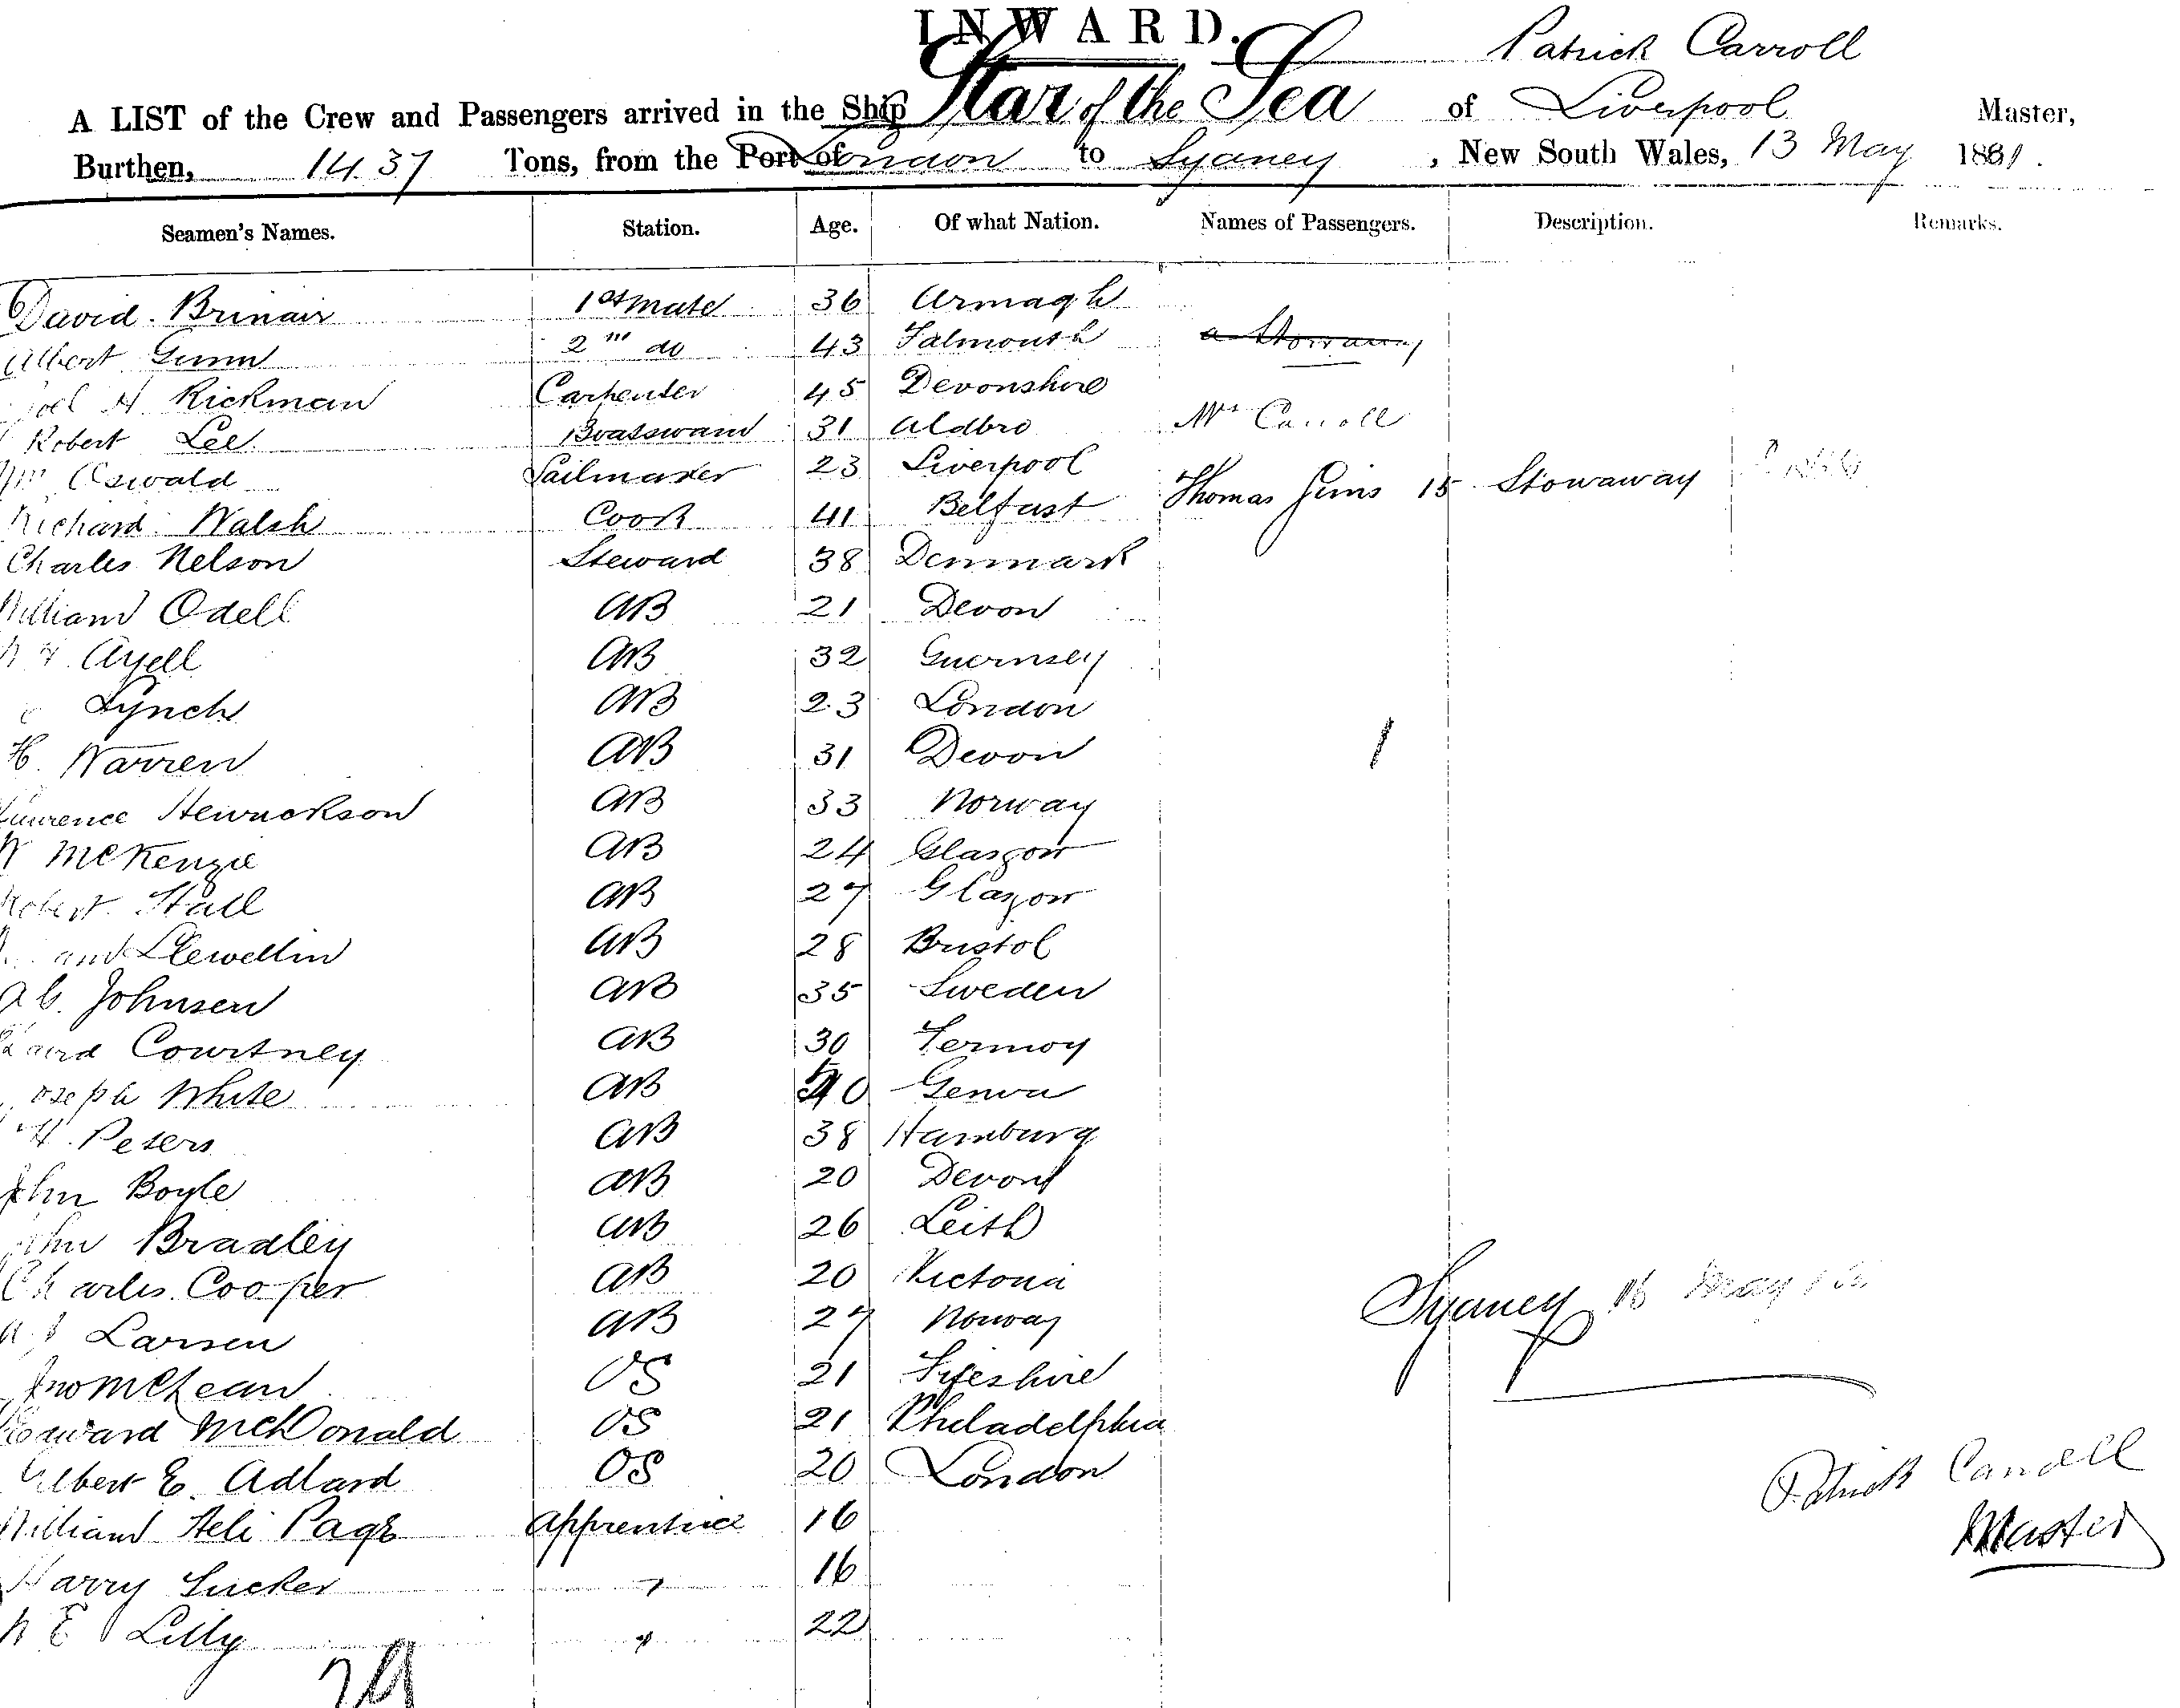 INWARD.
Patrick Carroll
A LIST of the Crew and Passengers arrived in the Ship Star of the Sea of Liverpool Master,
Burthen, 1437 Tons, from the Port of London to Sydney, New South Wales, 13 May 1881.
Seamen's Names. Station. Age. Of what Nation. Names of Passengers. Description. Remarks.
David Brinair 1st Mate 36 Armagh
Albert Gunn 2nd do 43 Falmouth a Stowaway
Joel H. Rickman Carpenter 45 Devonshire
Robert Lee Boatswain 31 Aldbro Mrs Carroll
Wm Oswald Sailmaker 23 Liverpool
Richard Walsh Cook 41 Belfast Thomas Jims 15 Stowaway
Charles Nelson Steward 38 Denmark
William Odell AB 21 Devon
Ayell AB 32 Guernsey
Lynch AB 23 London
H. Warren AB 31 Devon
1
Laurence Hewrickson AB 33 Norway
W McKenzie AB 24 Glasgow
Robert Hall AB 27 Glasgow
Llewellin AB 28 Bristol
A C. Johnsen AB 35 Sweden
Courtney AB 30 Fermoy
Joseph White AB 40 Genoa
H. Peters AB 38 Hamburg
John Boyle AB 20 Devon
John Bradley AB 26 Leith
Charles Cooper AB 20 Victoria
Larsen AB 27 Norway
Sydney 16 May
Jno McLean OS 21 Fifeshire
Edward McDonald OS 21 Philadelphia
Albert E. Adlard OS 20 London
Patrick Carroll
Master
William Heli Page Apprentice 16
Harry Tucker " 16
W E Lilly " 22
29